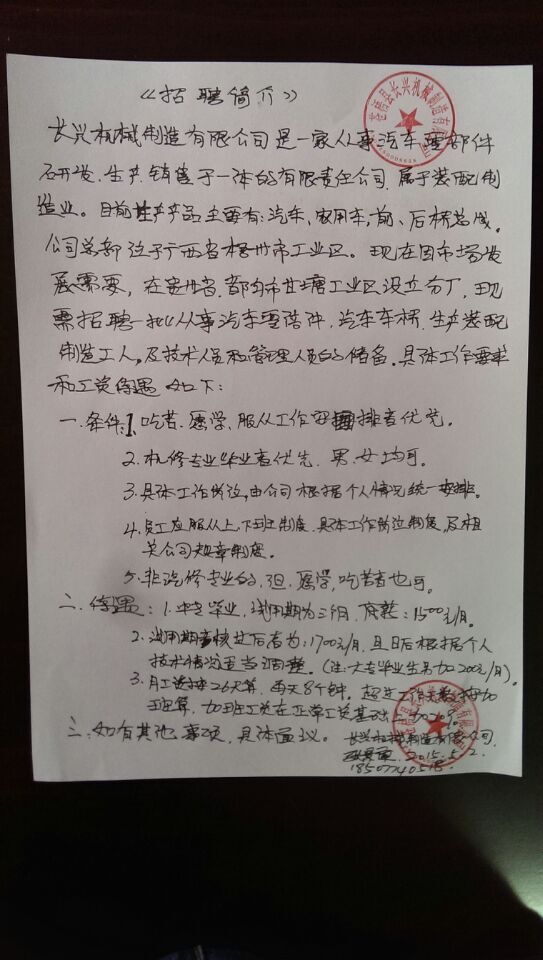 《招聘简介》
长兴机械制造有限公司是一家从事汽车零部件
研发、生产、销售于一体的有限责任公司,属于装配制
造业。目前生产产品主要有:汽车、家用车,前、后桥总成。
公司总部位于广西省梧州市工业区。现在因市场发
展需要,在贵州省都匀市甘塘工业区设立分厂,现
需招聘一批从事汽车零部件、汽车车桥、生产装配
制造工人,及技术人员和管理人员的储备。具体工作要求
和工资待遇如下:
一.条件:1.吃苦、愿学、服从工作安排者优先。
2.机修专业毕业者优先、男、女均可。
3.具体工作岗位,由公司根据个人情况统一安排。
4.员工应服从上、下班制度、具体工作岗位制度,及相
关公司规章制度。
5.非汽修专业的,但愿学,吃苦者也可。
二.待遇:1.中专毕业,试用期为三个月,底薪:1500元/月。
2.试用期考核过后者为:1700元/月,且日后根据个人
技术情况适当调整。(注:大专毕业生另加200元/月)。
3.月工资按26天算,每天8个钟,超过工作天数按加
班算,加班工资在正常工资基础上加20%。
三.如有其他事项,具体面议。
长兴机械制造有限公司
2015.5.2.
长兴机械制造有限公司